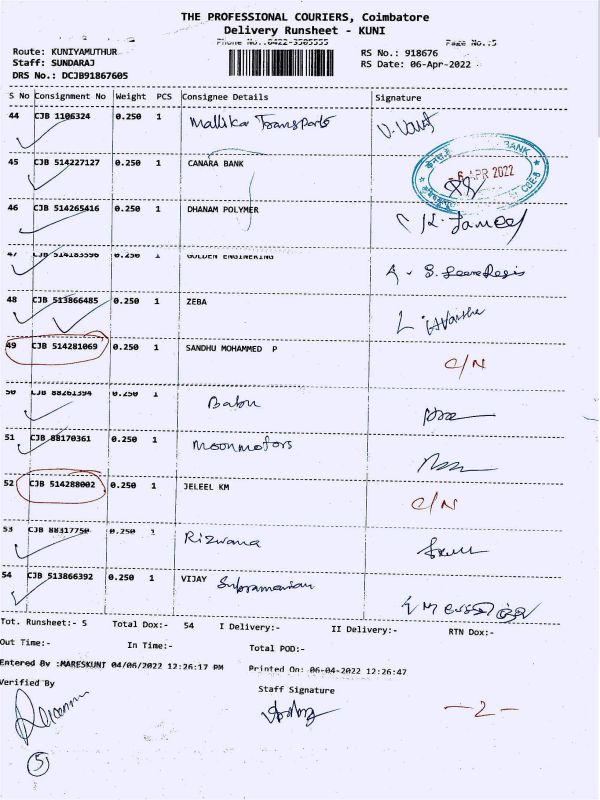 THE PROFESSIONAL COURIERS, Coimbatore
Delivery Runsheet - KUNI
Phone No.:0422-3505555 Page No.:5
Route: KUNIYAMUTHUR RS No.: 918676
Staff: SUNDARAJ RS Date: 06-Apr-2022
DRS No.: DCJB91867605
S No Consignment No Weight PCS Consignee Details Signature
44 CJB 1106324 0.250 1 Mallika Transports
45 CJB 514227127 0.250 1 CANARA BANK
BANK
6 APR 2022
46 CJB 514265416 0.250 1 DHANAM POLYMER
47 CJB 514183596 0.250 1 GOLDEN ENGINERING
48 CJB 513866485 0.250 1 ZEBA
49 CJB 514281069 0.250 1 SANDHU MOHAMMED P C/N
50 CJB 88261394 0.250 1 Babu
51 CJB 88170361 0.250 1 Moonmotors
52 CJB 514288002 0.250 1 JELEEL KM C/N
53 CJB 88317750 0.250 1 Rizwana
54 CJB 513866392 0.250 1 VIJAY Subramanian
Tot. Runsheet:- 5 Total Dox:- 54 I Delivery:- II Delivery:- RTN Dox:-
Out Time:- In Time:- Total POD:-
Entered By :MARESKUNI 04/06/2022 12:26:17 PM Printed On: 06-04-2022 12:26:47
Verified By Staff Signature
- 2 -
5